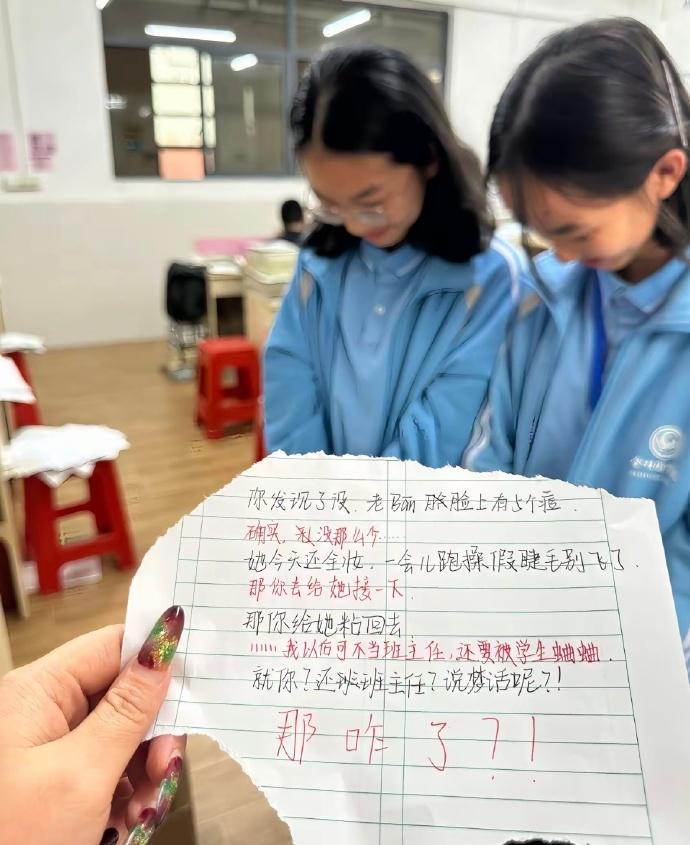 你发现了没，老班脸上有5个痘．
确实，我没那么个……
她今天还全妆，一会儿跑操假睫毛别飞了．
那你去给她接一下．
那你给她粘回去
……我以后可不当班主任，还要被学生蛐蛐．
就你？还班班主任？说梦话呢？！
那咋了？！